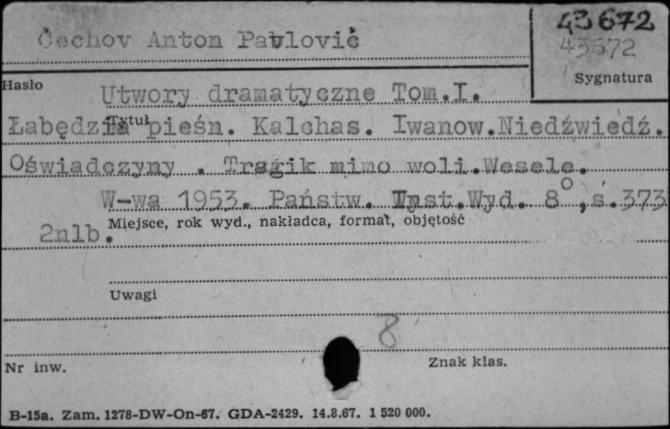 43672
Čechov Anton Pavlovič
43672
Sygnatura
Hasło
Utwory dramatyczne Tom.I.
Tytuł
Łabędzia pieśn. Kalchas. Iwanow.Niedźwiedź.
Oświadczyny . Tragik mimo woli.Wesele.
W-wa 1953. Państw. Inst.Wyd. 8°,s.373
Miejsce, rok wyd., nakładca, format, objętość
2nlb.
Uwagi
8
Nr inw.
Znak klas.
B-15a. Zam. 1278-DW-On-67. GDA-2429. 14.8.67. 1 520 000.